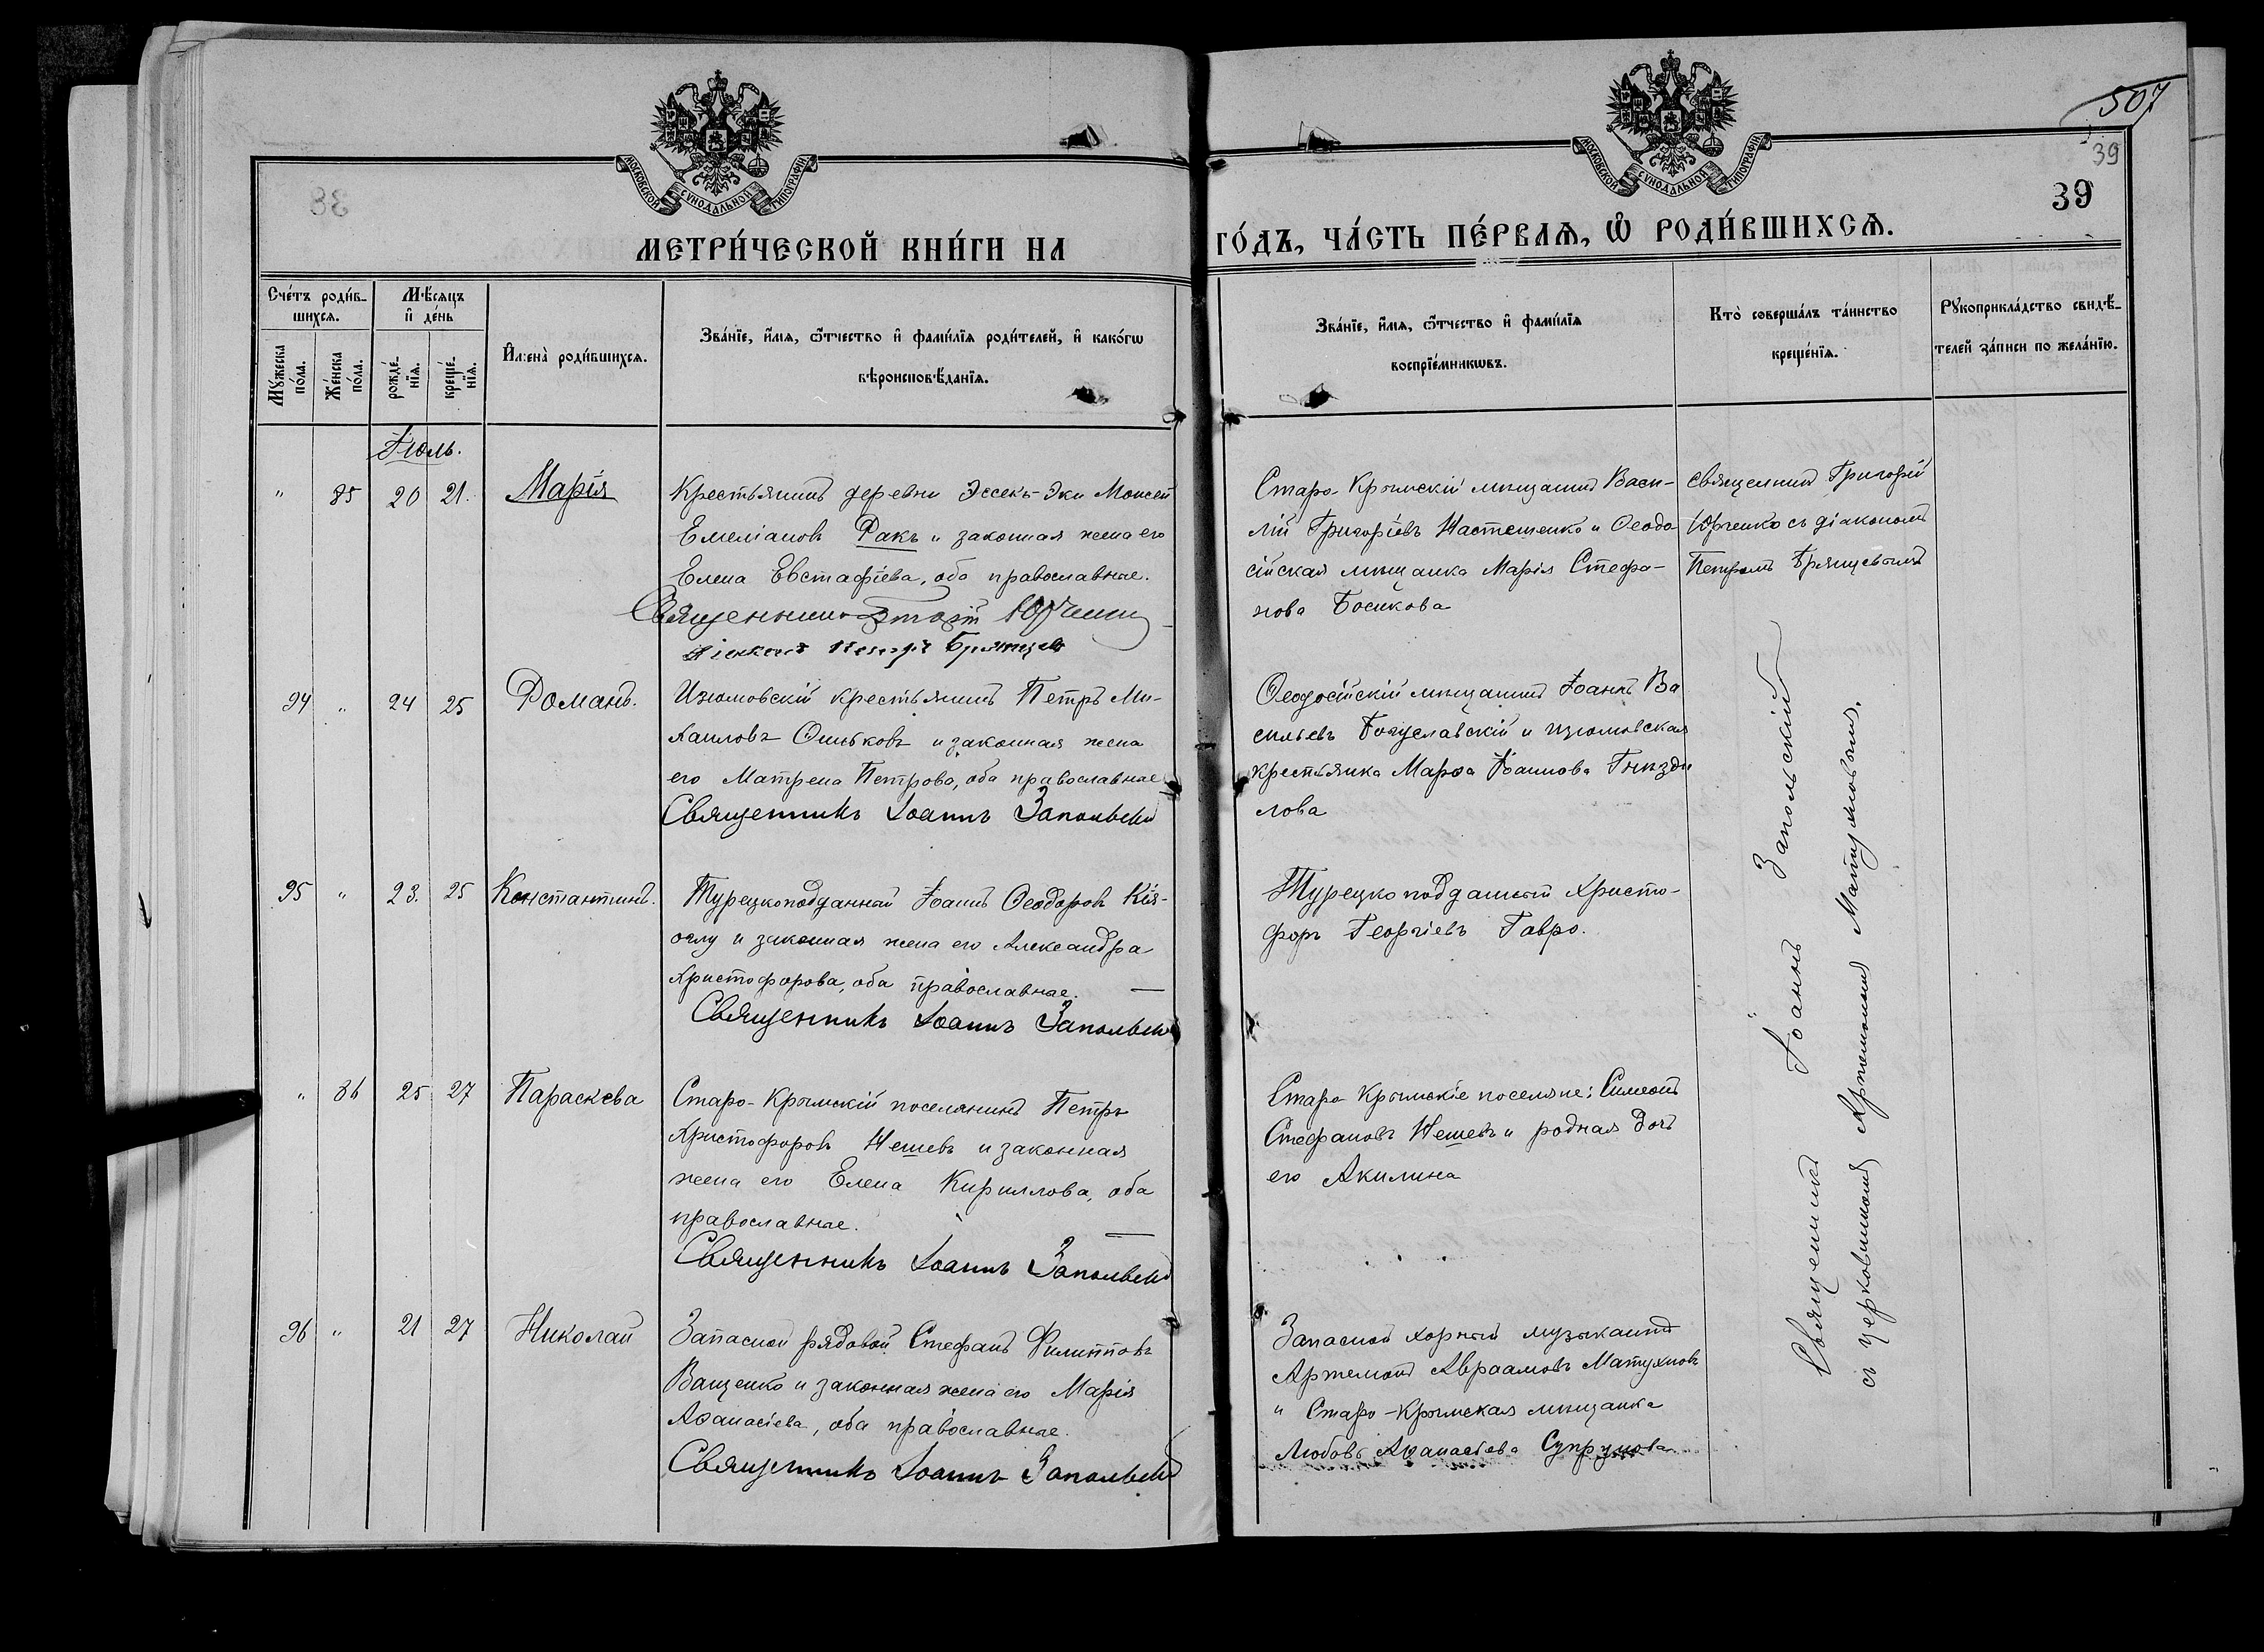 507
39
39
38
МОСКОВСКОЙ СѴНОДАЛЬНОЙ ТИПОГРАФІИ
МОСКОВСКОЙ СѴНОДАЛЬНОЙ ТИПОГРАФІИ
МЕТРИ́ЧЕСКОЙ КНИ́ГИ НА
ГО́ДЪ, ЧА́СТЬ ПЕ́РВАѦ, Ѡ РОДИ́ВШИХСѦ.
Сче́тъ роди́в-
шихсѧ.
Мꙋжеска по́ла.
Же́нска по́ла.
Мѣ́сѧцъ
и҆ де́нь
рожде́-
нїѧ.
креще́-
нїѧ.
И҆мена̀ роди́вшихсѧ.
Зва́нїе, и҆́мѧ, ѻ҆́тчество и҆ фами́лїѧ роди́телей, и҆ како́гѡ
вѣроисповѣ́данїѧ.
Зва́нїе, и҆́мѧ, ѻ҆́тчество и҆ фами́лїѧ
воспрїе́мникѡвъ.
Кто̀ соверша́лъ та́инство
креще́нїѧ.
Рꙋкоприкла́дство свидѣ́-
телей за́писи по жела́нїю.
Іюль.
" 85 20 21. Марія
Крестьянинъ деревни Эссекъ-Эки Моисей
Емеліановъ Ракъ и законная жена его
Елена Евстафіева, оба православные.
Священникъ
діаконъ Петръ Брянцевъ
Старо-Крымскій мѣщанинъ Васи-
лій Григоріевъ Настешенко и Ѳеодо
сійская мѣщанка Марія Стефа-
нова Босикова
Священникъ Григорій
Юрченко съ діакономъ
Петромъ Брянцевымъ
94 " 24 25 Романъ.
Изюмовскій крестьянинъ Петръ Ми-
хаиловъ Ошиьковъ и законная жена
его Матрена Петрова, оба православные
Священникъ Іоаннъ Запольскій
Ѳеодосійскій мѣщанинъ Іоаннъ Ва
сильевъ Богуславскій и изюмовская
крестьянка Марѳа Іоаннова Гнизди
лова
95 " 23. 25 Константинъ.
Турецкоподданный Іоаннъ Ѳеодоровъ Кія-
оглу и законная жена его Александра
Христофорова, оба православные. —
Священникъ Іоаннъ Запольскій
Турецкоподданный Христо-
форъ Георгіевъ Гавро.
" 86 25 27 Параскева
Старо-Крымскій поселянинъ Петръ
Христофоровъ Нешевъ и законная
жена его Елена Кириллова, оба
православные. —
Священникъ Іоаннъ Запольскій
Старо-Крымскіе поселяне: Симеонъ
Стефановъ Нешевъ и родная дочь
его Акилина
96 " 21 27 Николай
Запасной рядовой Стефанъ Филипповъ
Ващенко и законная жена его Марія
Аѳанасіева, оба православные.
Священникъ Іоаннъ Запольскій
Запасной хорный музыкантъ
Артемонъ Авраамовъ Матухновъ
и Старо-Крымская мѣщанка
Любовь Аѳанасіева Супрунова
Священникъ Іоаннъ Запольскій
съ церковникомъ Артемономъ Матухновымъ.